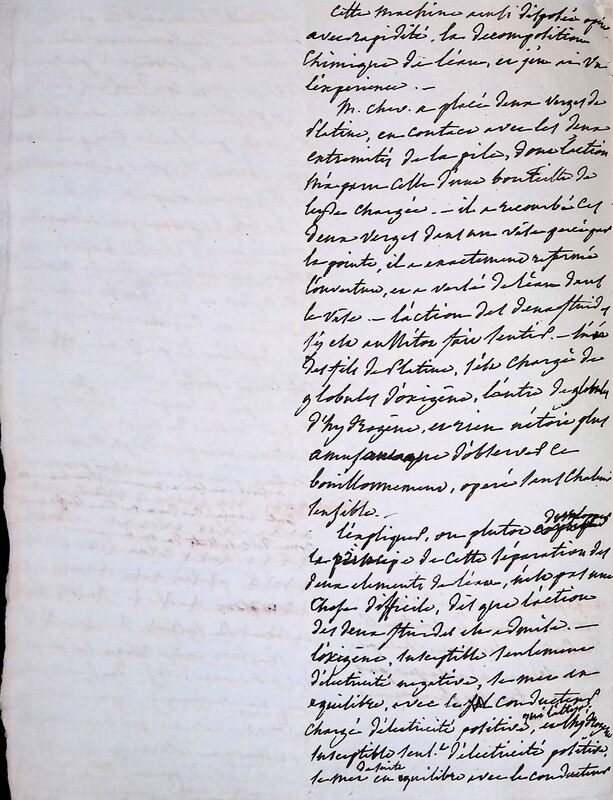 Cette machine ainsi disposée opère
avec rapidité, la decomposition
chimique de l'eau, et j'en ai vu
l'expérience. —
M. Chev. a placé deux verges de
Platine, en contact avec les deux
extremités de la pile, dont l'action
n'égare celle d'une bouteille de
leyde chargée. — il a recourbé ces
deux verges dans un vase percé par
la pointe, il a exactement refermé
l'ouverture, et a versé de l'eau dans
le vase. — l'action des deux fluides
s'y est aussitot fait sentir. — l'un
des fils de Platine, s'est chargé de
globules d'oxigène, l'autre de globules
d'hydrogène, et rien n'étoit plus
amusant que d'observer ce
bouillonnement, operé sans chaleur
sensible. —
l'expliquer, ou plutot developper
le principe de cette separation des
deux elements de l'eau, n'est pas une
chose difficile, dès que l'action
des deux fluides est admise. —
l'oxigène, susceptible seulement
d'électricité negative, se met en
equilibre, avec le conducteur
chargé d'électricité positive, qui l'attire, et l'hydrogène
susceptible seul.t d'électricité positive,
se met de suite en equilibre avec le conducteur